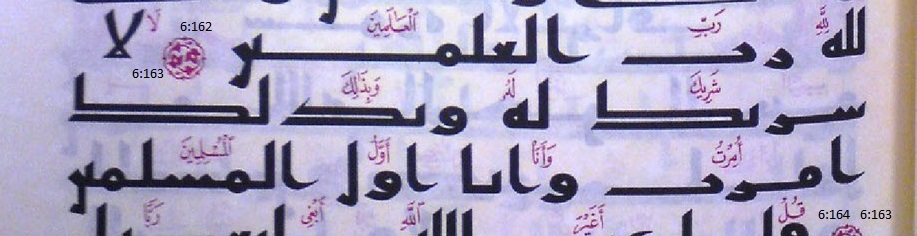 لِلَّهِ رَبِّ ٱلْعَـٰلَمِينَ 6:162 لَا
لله رب العلمين 6:163 لا
شَرِيكَ لَهُۥ وَبِذَٰلِكَ
شريك له وبذلك
أُمِرْتُ وَأَنَا۠ أَوَّلُ ٱلْمُسْلِمِينَ
امرت وانا اول المسلمين
6:163 6:164 قُلْ أَغَيْرَ ٱللَّهِ أَبْغِى رَبًّا